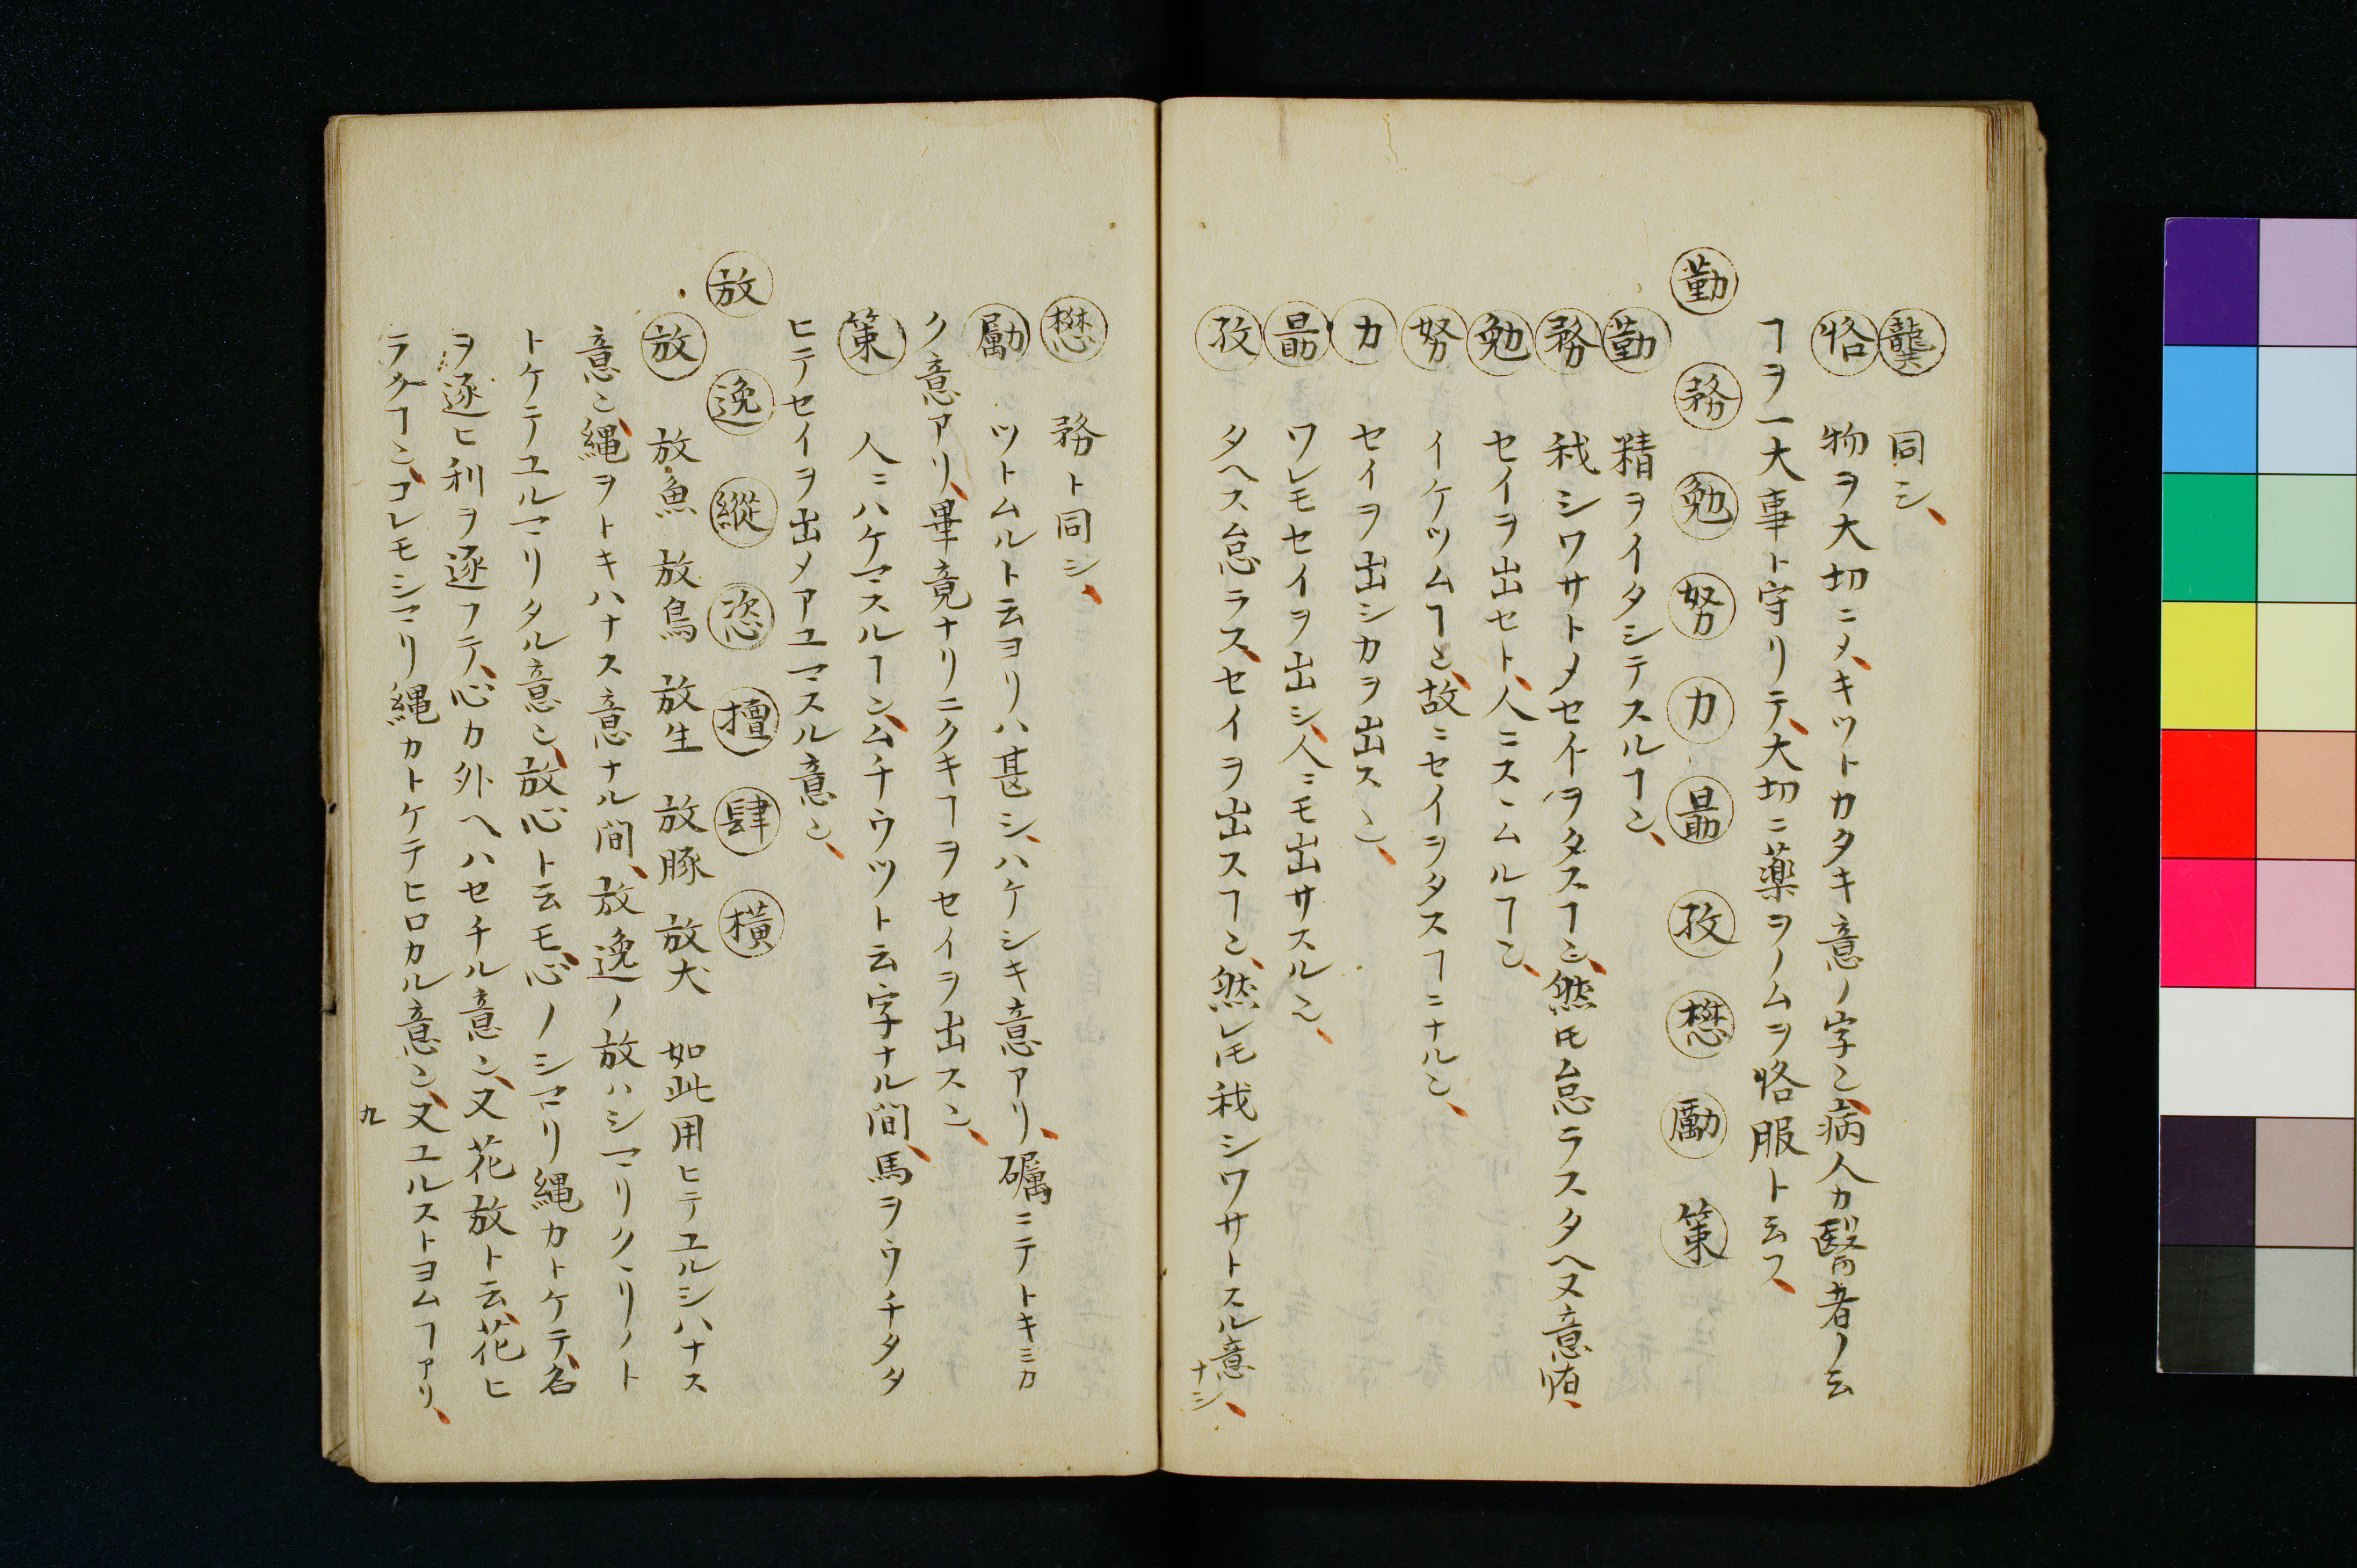 龔 同シ、
恪 物ヲ大切ニメ、キツトカタキ意ノ字𪜈、病人カ醫者ノ云
ヿヲ一大事ト守リテ、大切ニ薬ヲノムヲ恪服ト云フ、
勤 務 勉 努 力 勗 孜 懋 勵 策
勤 精ヲイタシテスルヿ也、
務 我シワサトメセイヲタスヿ也、然𪜈怠ラスタヘヌ意有、
勉 セイヲ出セト、人ニスヽムルヿ也、
努 イケツムヿ也、故ニセイヲタスヿニナル也、
力 セイヲ出シカヲ出ス也、
勗 ワレモセイヲ出シ、人ニモ出サスル也、
孜 タヘス怠ラス、セイヲ出スヿ也、然レ𪜈我シワサトスル意ナシ、
懋 務ト同シ、
勵 ツトムルト云ヨリハ甚シ、ハケシキ意アリ、礪ニテトキミカ
ク意アリ、畢竟ナリニクキヿヲセイヲ出ス也、
策 人ニハケマスルヿ也、ムチウツト云字ナル間、馬ヲウチタタ
ヒテセイヲ出メアユマスル意也、
放 逸 縱 恣 擅 肆 横
放 放魚 放鳥 放生 放豚 放犬 如此用ヒテユルシハナス
意也、縄ヲトキハナス意ナル間、放逸ノ放ハシマリクヽリノト
トケテユルマリタル意也、放心ト云モ、心ノシマリ縄カトケテ、名
ヲ逐ヒ利ヲ逐フテ、心カ外ヘハセチル意也、又花放ト云、花ヒ
ラクヿ也、コレモシマリ縄カトケテヒロカル意也、又ユルストヨムヿアリ、
九